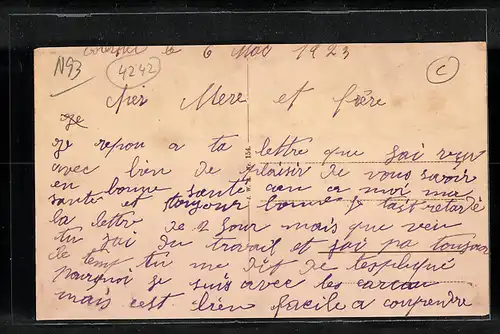 le 6 Mai 1923
N93
4242
C
cher Mere et frère
je
je repon a ta lettre que jai reçu
avec bien de plaisir de vous savoir
en bonne santé can a moi ma
santé et toujour bonne je tait retardé
la lettre de 2 jour mais que veu
tu jai du travail et jai pa toujour
le temp tu me dit de tespliqué
pourquoi je suis avec les
mais cest bien facile a comprendre
154